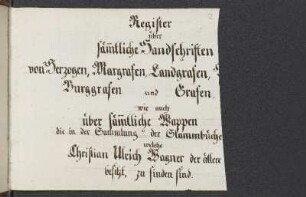 Register
über
sämtliche Handschriften
von Herzogen, Margrafen, Landgrafen,
Burggrafen und Grafen
wie auch
über sämtliche Wappen
die in der Sammlung der Stammbüche
welche
Christian Ulrich Wagner der ältere
besitzt, zu finden sind.